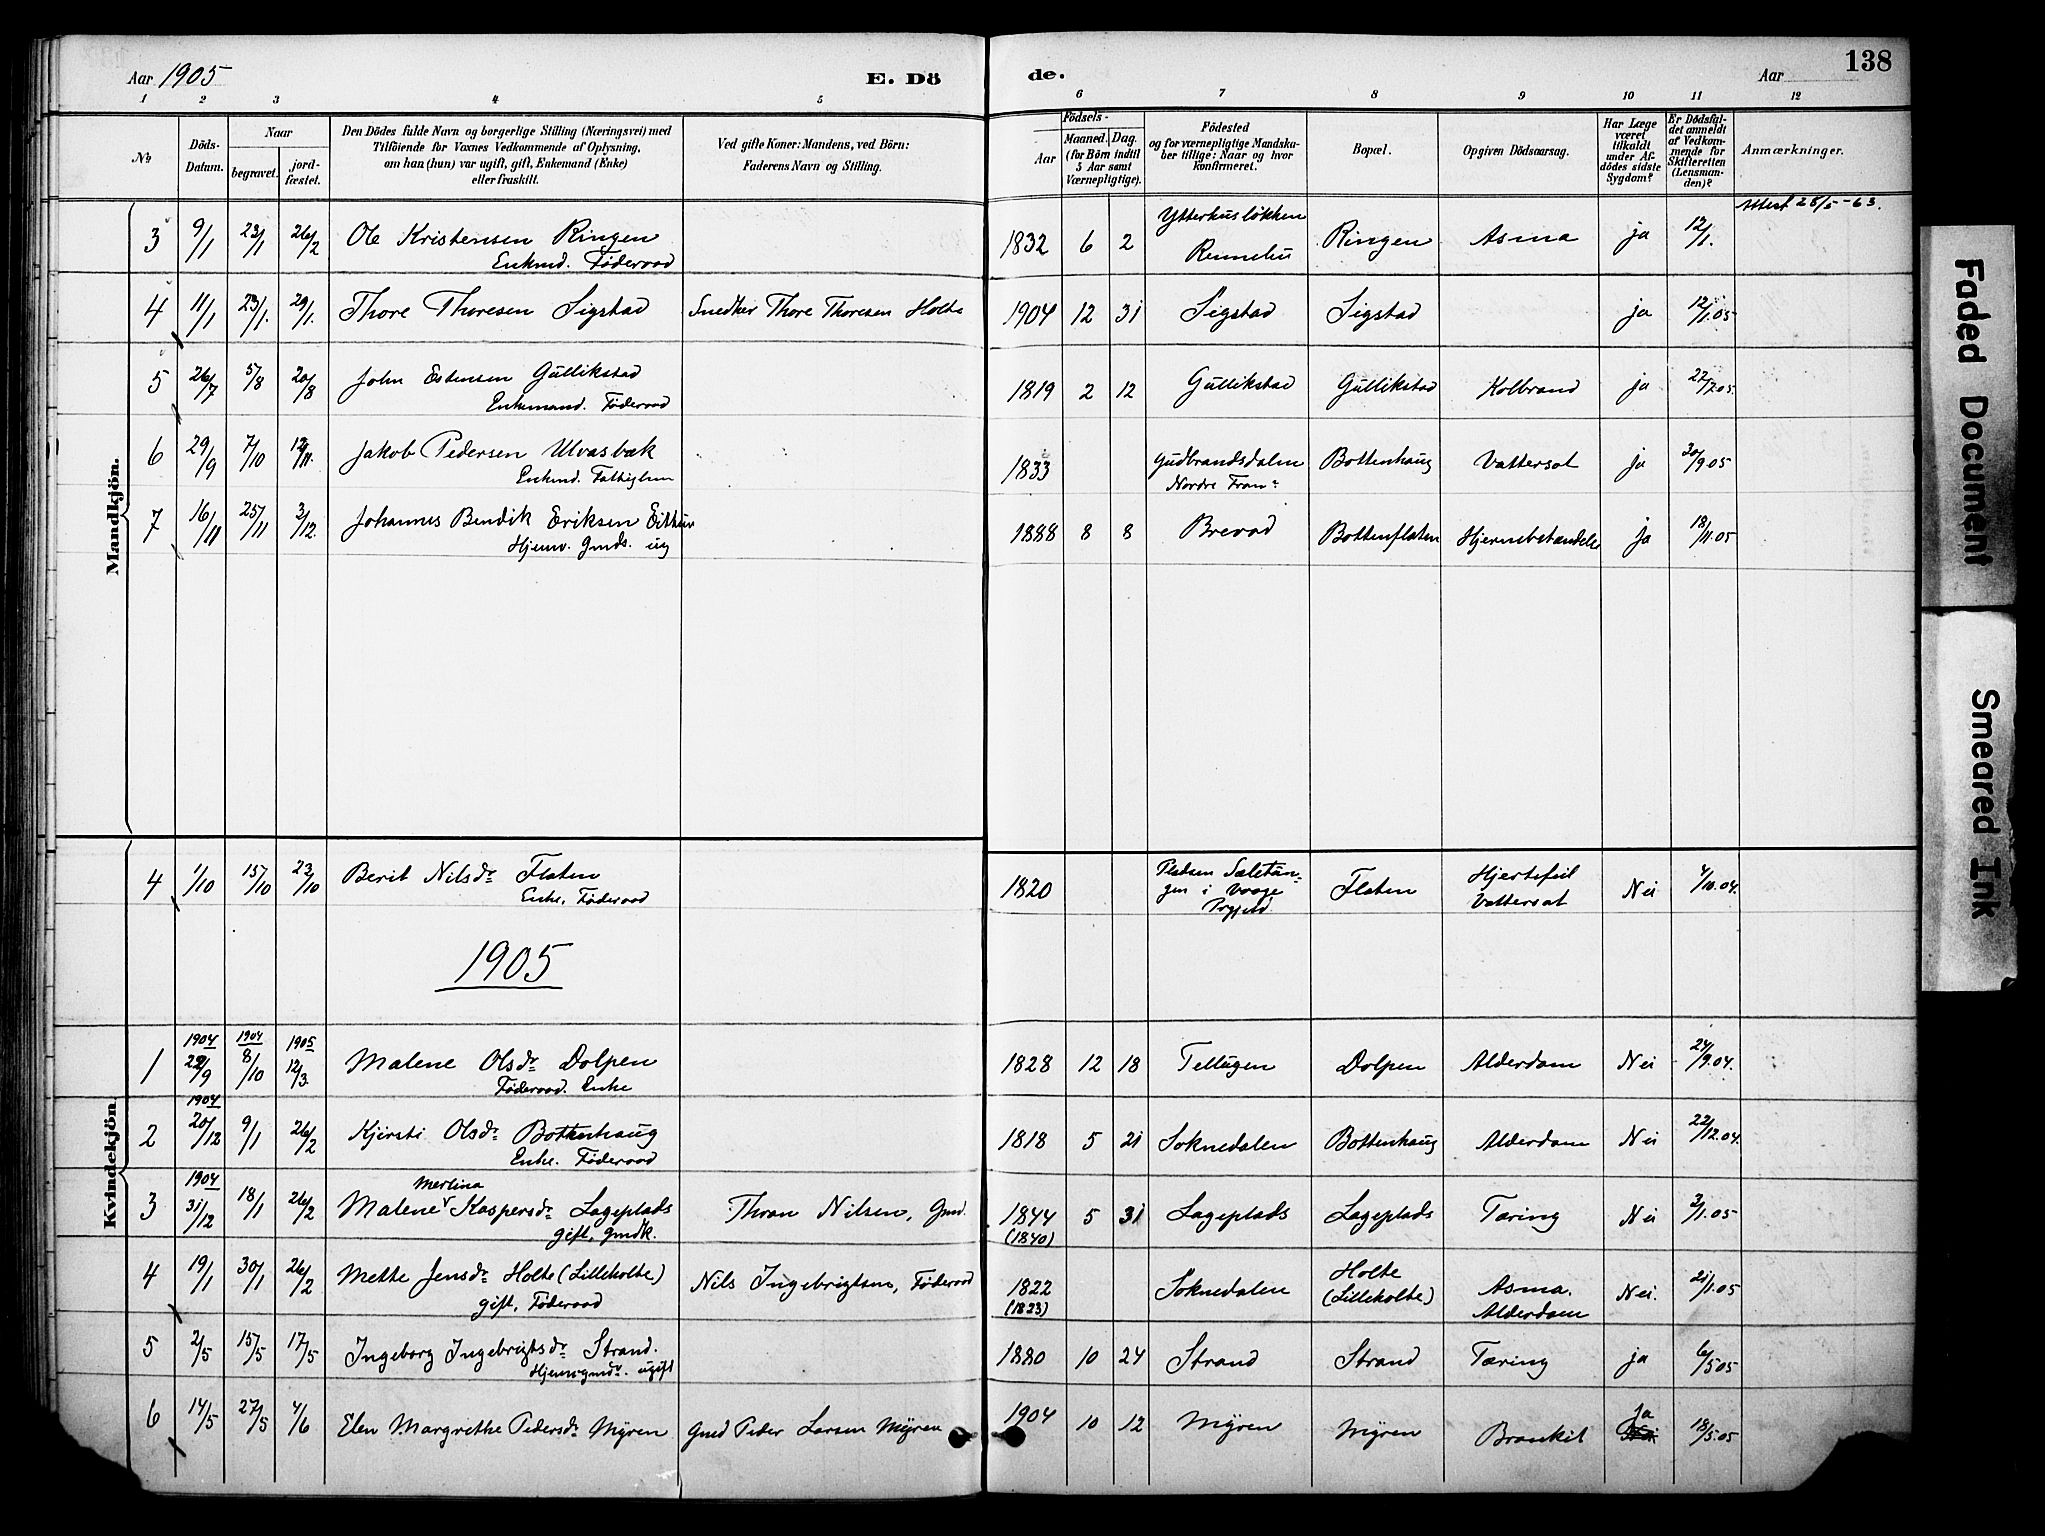 Aar 1905
E. Dö
de.
Aar
138
1 2 3 4 5 6 7 8 9 10 11 12
No
Döds-Datum.
Naar
begravet.
jordfæstet.
Den Dödes fulde Navn og borgerlige Stilling (Næringsvei) med
Tilföiende for Voxnes Vedkommende af Oplysning,
om han (hun) var ugift, gift, Enkemand (Enke)
eller fraskilt.
Ved gifte Koner: Mandens, ved Börn:
Faderens Navn og Stilling.
Födsels-
Aar
Maaned. Dag.
(for Börn indtil
5 Aar samt
Værnepligtige).
Födested
og for værnepligtige Mandska-
ber tillige: Naar og hvor
konfirmeret.
Bopæl.
Opgiven Dödsaarsag.
Har Læge
været
tilkaldt
under Af-
dödes sidste
Sygdom?
Er Dödsfal-
det anmeldt
af Vedkom-
mende for
Skifteretten
(Lensman-
den)?
Anmærkninger.
Mandkjön.
Attest 28/5-63.
3 9/1 23/1 26/2 Ole Kristensen Ringen 1832 6 2 Ytterhusløkken Ringen Asma ja 12/1.
Enkmd. Føderaad Rennebu
4 11/1 23/1. 29/1. Thore Thoresen Sigstad Snedker Thore Thoresen Holte 1904 12 31 Sigstad Sigstad ja 12/1.05
5 26/7 5/8 20/8 John Estensen Gullikstad 1819 2 12 Gullikstad Gullikstad Kolbrand ja 27/7.05.
Enkemand. Føderaad
6 29/9 7/10 12/11. Jakob Pedersen Ulvasbæk 1833 Gudbrandsdalen Bottenhaug Vattersot ja 30/9.05
Enkmd. Fattiglem Nordre Fron
7 16/11 25/11 3/12. Johannes Bendik Eriksen Eithun 1888 8 8 Brevad Bottenflaten Hjernebetændelse ja 18/11.05
Hjemv. Gmds. ug
Kvindekjön.
4 1/10 15/10 23/10 Berit Nilsdr. Flaten 1820 Pladsen Sæletun- Flaten Hjertefeil Nei 4/10.04.
Enke, Føderaad gen i Vaage Vattersot
Prgjeld
1905
1904 1904 1905
1 22/9 8/10 12/3. Malene Olsdr. Dolpen 1828 12 18 Tellugen Dolpen Alderdom Nei 24/9.04.
Føderaad. Enke
1904
2 20/12 9/1 26/2 Kjersti Olsdr. Bottenhaug 1818 5 21 Soknedalen Bottenhaug Alderdom Nei 22/12.04.
Enke. Føderaad
1904 Merlina
3 31/12 18/1 26/2 Malene Kaspersdr. Lageplads Thron Nilsen, Gmd. 1844 5 31 Lageplads Lageplads Tæring Nei 3/1.05
gift, Gmdk. (1840)
4 19/1 30/1 26/2 Mette Jensdr. Holte (Lilleholte) Nils Ingebrigtsen, Føderaad 1822 Soknedalen Holte Asma. Nei. 21/1.05
gift, Føderaad (1823) (Lilleholte) Alderdom
5 2/5 15/5 17/5 Ingeborg Ingebrigtsdr. Strand. 1880 10 24 Strand Strand Tæring ja 6/5 05
ugift
6 14/5 27/5 4/6 Elen Margrethe Pedersdr. Myren Gmd Peder Larsen Myren 1904 10 12 Myren Myren Bronkit Ja 18/5.05
Faded Document
Smeared Ink